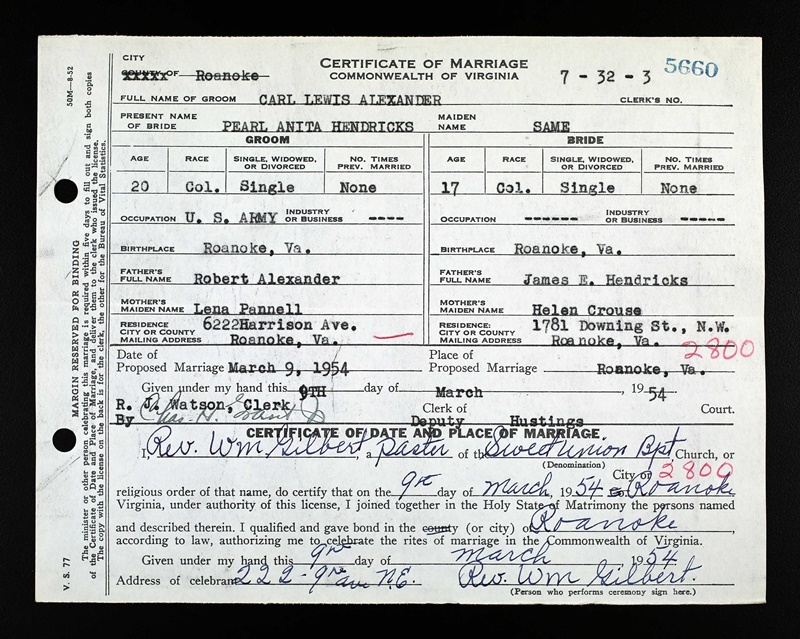 CITY
COUNTY OF Roanoke
CERTIFICATE OF MARRIAGE
COMMONWEALTH OF VIRGINIA
7 - 32 - 3
5660
FULL NAME OF GROOM CARL LEWIS ALEXANDER CLERK'S NO.
PRESENT NAME OF BRIDE PEARL ANITA HENDRICKS MAIDEN NAME SAME
GROOM BRIDE
AGE RACE SINGLE, WIDOWED, OR DIVORCED NO. TIMES PREV. MARRIED AGE RACE SINGLE, WIDOWED, OR DIVORCED NO. TIMES PREV. MARRIED
20 Col. Single None 17 Col. Single None
OCCUPATION U. S. ARMY INDUSTRY OR BUSINESS ---- OCCUPATION ------ INDUSTRY OR BUSINESS -----
BIRTHPLACE Roanoke, Va. BIRTHPLACE Roanoke, Va.
FATHER'S FULL NAME Robert Alexander FATHER'S FULL NAME James E. Hendricks
MOTHER'S MAIDEN NAME Lena Pannell MOTHER'S MAIDEN NAME Helen Crouse
RESIDENCE CITY OR COUNTY MAILING ADDRESS 6222Harrison Ave. Roanoke, Va. RESIDENCE: CITY OR COUNTY MAILING ADDRESS 1781 Downing St., N.W. Roanoke, Va.
2800
Date of Proposed Marriage March 9, 1954 Place of Proposed Marriage Roanoke, Va.
Given under my hand this 9TH day of March, 1954
R. J. Watson, Clerk Clerk of Court.
By Deputy Hustings
CERTIFICATE OF DATE AND PLACE OF MARRIAGE.
I, Rev. Wm Gilbert, a Pastor of the Sweet Union Bpt Church, or
(Denomination)
City or 2800
religious order of that name, do certify that on the 9th day of March, 1954 Roanoke
Virginia, under authority of this license, I joined together in the Holy State of Matrimony the persons named
and described therein. I qualified and gave bond in the county (or city) of Roanoke,
according to law, authorizing me to celebrate the rites of marriage in the Commonwealth of Virginia.
Given under my hand this 9th day of March 1954
Address of celebrant 222-9th ave N.E. Rev. Wm Gilbert.
(Person who performs ceremony sign here.)
V. S. 77
50M—8-52
MARGIN RESERVED FOR BINDING
The minister or other person celebrating this marriage is required within five days to fill out and sign both copies
of the Certificate of Date and Place of Marriage, and deliver them to the clerk who issued the license.
The copy with the license on the back is for the clerk, the other for the Bureau of Vital Statistics.